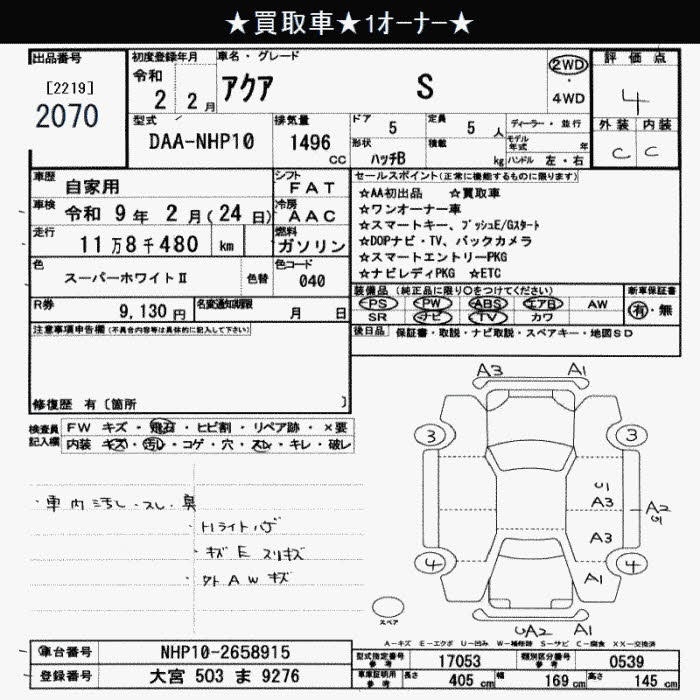 ★買取車★1オーナー★
出品番号
[2219]
2070
初度登録年月
令和
2 2月
車名・グレード
アクア S
2WD
・
4WD
評価点
4
外装 内装
C C
型式
DAA-NHP10
排気量
1496
cc
ドア 5
定員 5 人
形状 ハッチB
積載 kg
ディーラー・並行
モデル年式 年
ハンドル 左・右
車歴 自家用
車検 令和 9年 2月(24日)
走行 11万8千480 km
シフト FAT
冷房 AAC
燃料 ガソリン
色 スーパーホワイトⅡ 色替
色コード 040
R券 9,130円
名変通知期限 月 日
注意事項申告欄(不具合内容等は具体的に記入して下さい)
修復歴 有〔箇所 〕
セールスポイント(正常に機能するものに限ります)
☆AA初出品 ☆買取車
☆ワンオーナー車
☆スマートキー、プッシュE/Gスタート
☆DOPナビ・TV、バックカメラ
☆スマートエントリーPKG
☆ナビレディPKG ☆ETC
装備品(純正品に限り○をつけてください) 新車保証書
PS PW ABS エアB AW
SR ナビ TV カワ
有・無
後日品 保証書・取説・ナビ取説・スペアキー・地図SD
検査員記入欄
FW キズ・飛石・ヒビ割・リペア跡・×要
内装 キズ・汚レ・コゲ・穴・スレ・キレ・破レ
・車内汚し・スレ・臭
・Hライトハゲ
・キズEスリキズ
・外AWキズ
A3 A1
3 3
U1
A3
A2
A3
4 4
A1
UA2 A1
スペア
A-キズ E-エクボ U-凹み W-補修跡 S-サビ C-腐食 XX-交換済
車台番号 NHP10-2658915
登録番号 大宮 503 ま 9276
型式指定番号 参考 17053
類別区分番号 参考 0539
車庫証明用 参考
長さ 405 cm
幅 169 cm
高さ 145 cm